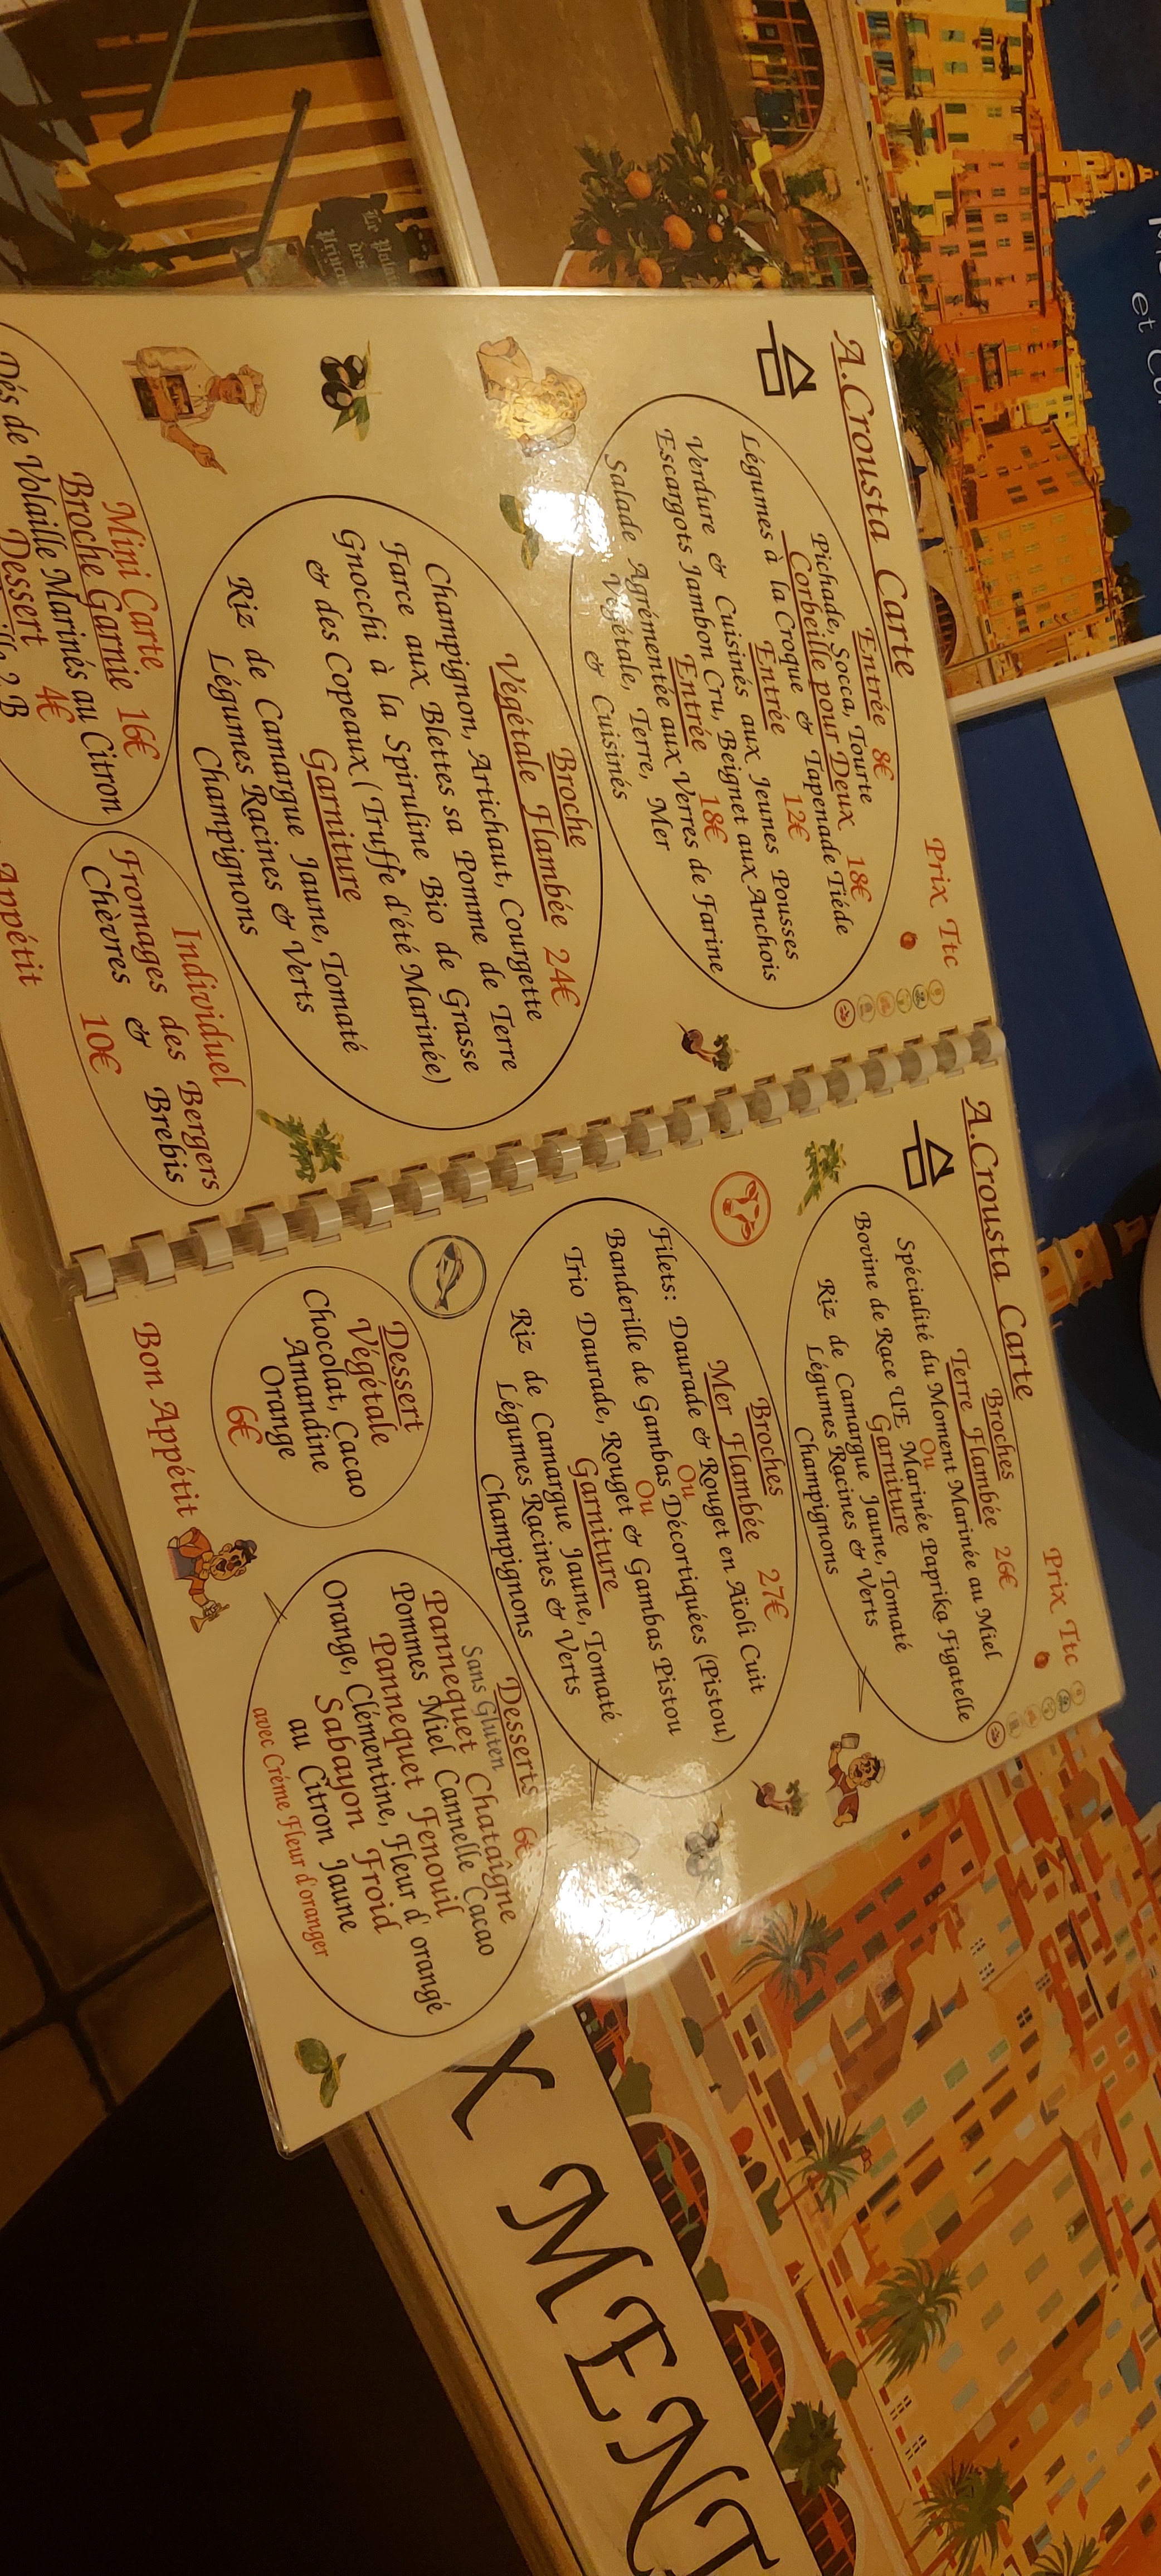 A.Crousta Carte
Prix Ttc
Entrée 8€
Pichade, Socca, Tourte
Corbeille pour Deux 18€
Légumes à la Croque & Tapenade Tiéde
Entrée 12€
Verdure & Cuisinés aux Jeunes Pousses
Escargots Jambon Cru, Beignet aux Anchois
Entrée 18€
Salade Agrémentée aux Verres de Farine
Végétale, Terre, Mer
& Cuisinés
Broche
Végétale Flambée 24€
Champignon, Artichaut, Courgette
Farce aux Blettes sa Pomme de Terre
Gnocchi à la Spiruline Bio de Grasse
& des Copeaux (Truffe d'été Marinée)
Garniture
Riz de Camargue Jaune, Tomaté
Légumes Racines & Verts
Champignons
Mini Carte
Broche Garnie 16€
Dés de Volaille Marinés au Citron
Dessert 4€
Individuel
Fromages des Bergers
Chèvres & Brebis
10€
Appétit
A.Crousta Carte
Prix Ttc
Broches
Terre Flambée 26€
Spécialité du Moment Marinée au Miel
Ou
Bovine de Race UE Marinée Paprika Figatelle
Garniture
Riz de Camargue Jaune, Tomaté
Légumes Racines & Verts
Champignons
Broches
Mer Flambée 27€
Filets: Daurade & Rouget en Aïoli Cuit
Ou
Banderille de Gambas Décortiquées (Pistou)
Ou
Trio Daurade, Rouget & Gambas Pistou
Garniture
Riz de Camargue Jaune, Tomaté
Légumes Racines & Verts
Champignons
Dessert
Végétale
Chocolat, Cacao
Amandine
Orange
6€
Desserts 6€
Sans Gluten
Pannequet Chataîgne
Pommes Miel Cannelle Cacao
Pannequet Fenouil
Orange, Clémentine, Fleur d'orangé
Sabayon Froid
au Citron Jaune
avec Créme Fleur d'oranger
Bon Appétit
et
X MENT